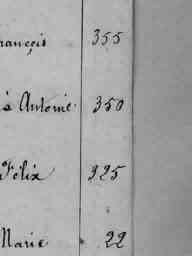 rançois 355
à Antoine 350
Félix 325
Marie 22